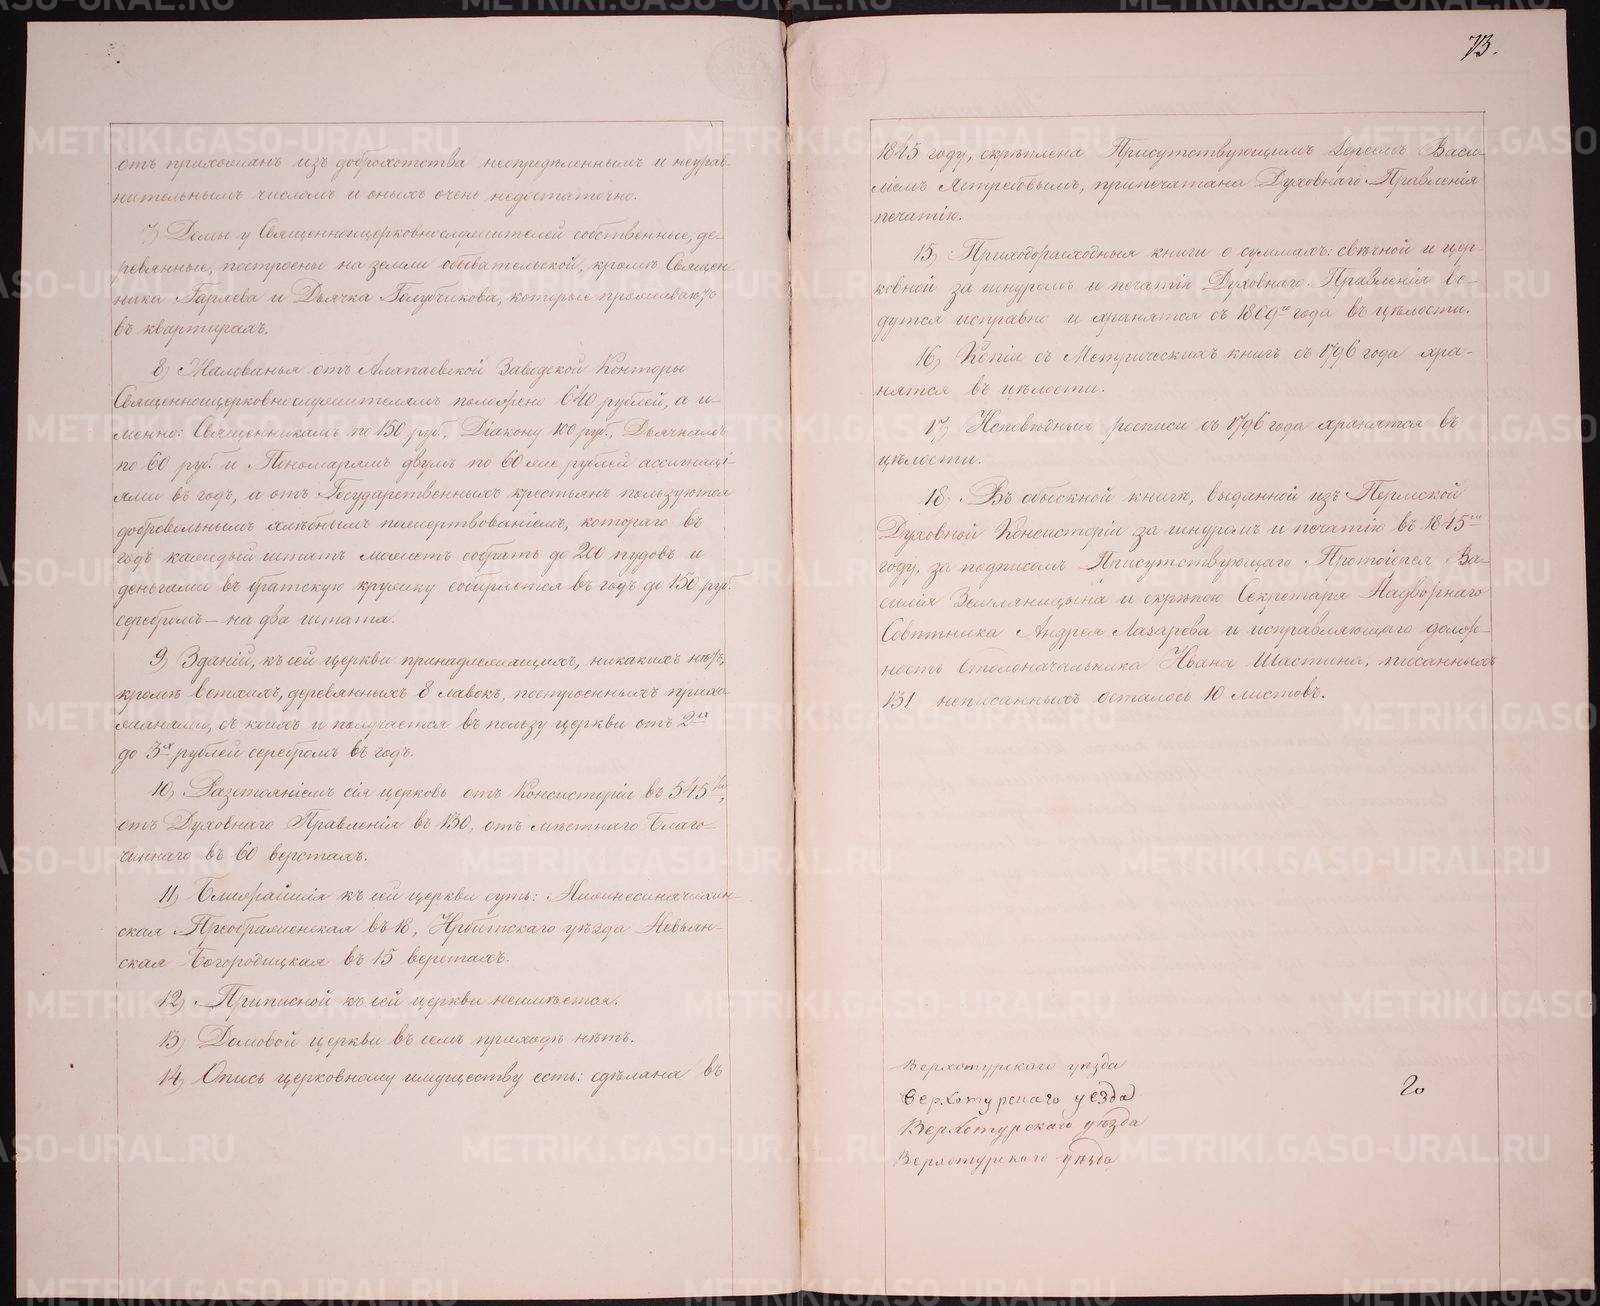 отъ прихожанъ изъ доброхотства неопредѣленнымъ и неурав-
нительнымъ числомъ и оныхъ очень недостаточно.
7) Домы у Священноицерковнослужителей собственные, де-
ревянные, построены на земли обывательской, кромѣ Священ-
ника Гаряева и Дьячка Голубчикова, которые проживаютъ
въ квартирахъ.
8) Жалованья отъ Алапаевской Заводской Конторы
Священноицерковнослужителямъ положено 640 рублей, а и-
менно: Священникамъ по 150 руб., Діакону 100 руб., Дьячкамъ
по 60 руб. и Пономарямъ двумъ по 60 же рублей ассигнаці-
ями въ годъ, а отъ Государственныхъ крестьянъ пользуются
добровольнымъ хлѣбнымъ пожертвованіемъ, котораго въ
годъ каждый штатъ можетъ собрать до 200 пудовъ и
деньгами въ братскую кружку собирается въ годъ до 150 руб.
серебромъ — на два штата.
9) Зданій, къ сей церкви принадлежащихъ, никакихъ нѣтъ,
кромѣ ветхихъ, деревянныхъ 8 лавокъ, построенныхъ прихо-
жанами, съ коихъ и получается въ пользу церкви отъ 2хъ
до 3х рублей серебромъ въ годъ.
10) Разстояніемъ сія церковь отъ Консисторіи въ 545ти,
отъ Духовнаго Правленія въ 130, отъ мѣстнаго Благо-
чиннаго въ 60 верстахъ.
11) Ближайшія къ сей церкви суть: Нижнесинячихин-
ская Преображенская въ 18, Ирбитскаго уѣзда Невьян-
ская Богородицкая въ 15 верстахъ.
12) Приписной къ сей церкви неимѣется.
13) Домовой церкви въ семъ приходѣ нѣтъ.
14) Опись церковному имуществу есть: сдѣлана въ
73.
1845 году, скрѣплена Присутствующимъ Іереемъ Васи-
ліемъ Ястребовымъ, припечатана Духовнаго Правленія
печатію.
15) Приходорасходныя книги о суммахъ: свѣчной и цер-
ковной за шнуромъ и печатію Духовнаго Правленія ве-
дутся исправно и хранятся съ 1809го года въ цѣлости.
16) Копіи съ Метрическихъ книгъ съ 1796 года хра-
нятся въ цѣлости.
17) Исповѣдныя росписи съ 1796 года хранятся въ
цѣлости.
18) Въ обыскной книгѣ, выданной изъ Пермской
Духовной Консисторіи за шнуромъ и печатію въ 1845мъ
году, за подписомъ Присутствующаго Протоіерея Ва-
силія Земляницына и скрѣпою Секретаря Надворнаго
Совѣтника Андрея Лазарева и исправляющаго долж-
ность Столоначальника Ивана Шастина, писанныхъ
131 неписанныхъ осталось 10 листовъ.
Верхотурскаго уѣзда
Верхотурскаго уезда
Верхотурскаго уѣзда
Верхотурскаго уѣзда